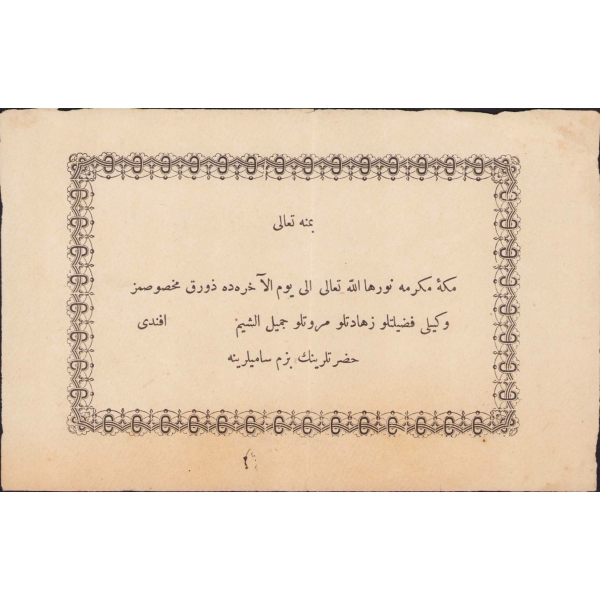 بمنه تعالى
مكۀ مكرمه نورها الله تعالى الى يوم الآخره‌ده ذورق مخصوصمز
وكيلى فضيلتلو زهادتلو مروتلو جميل الشيخ افندى
حضرتلرينك بزم ساميلرينه